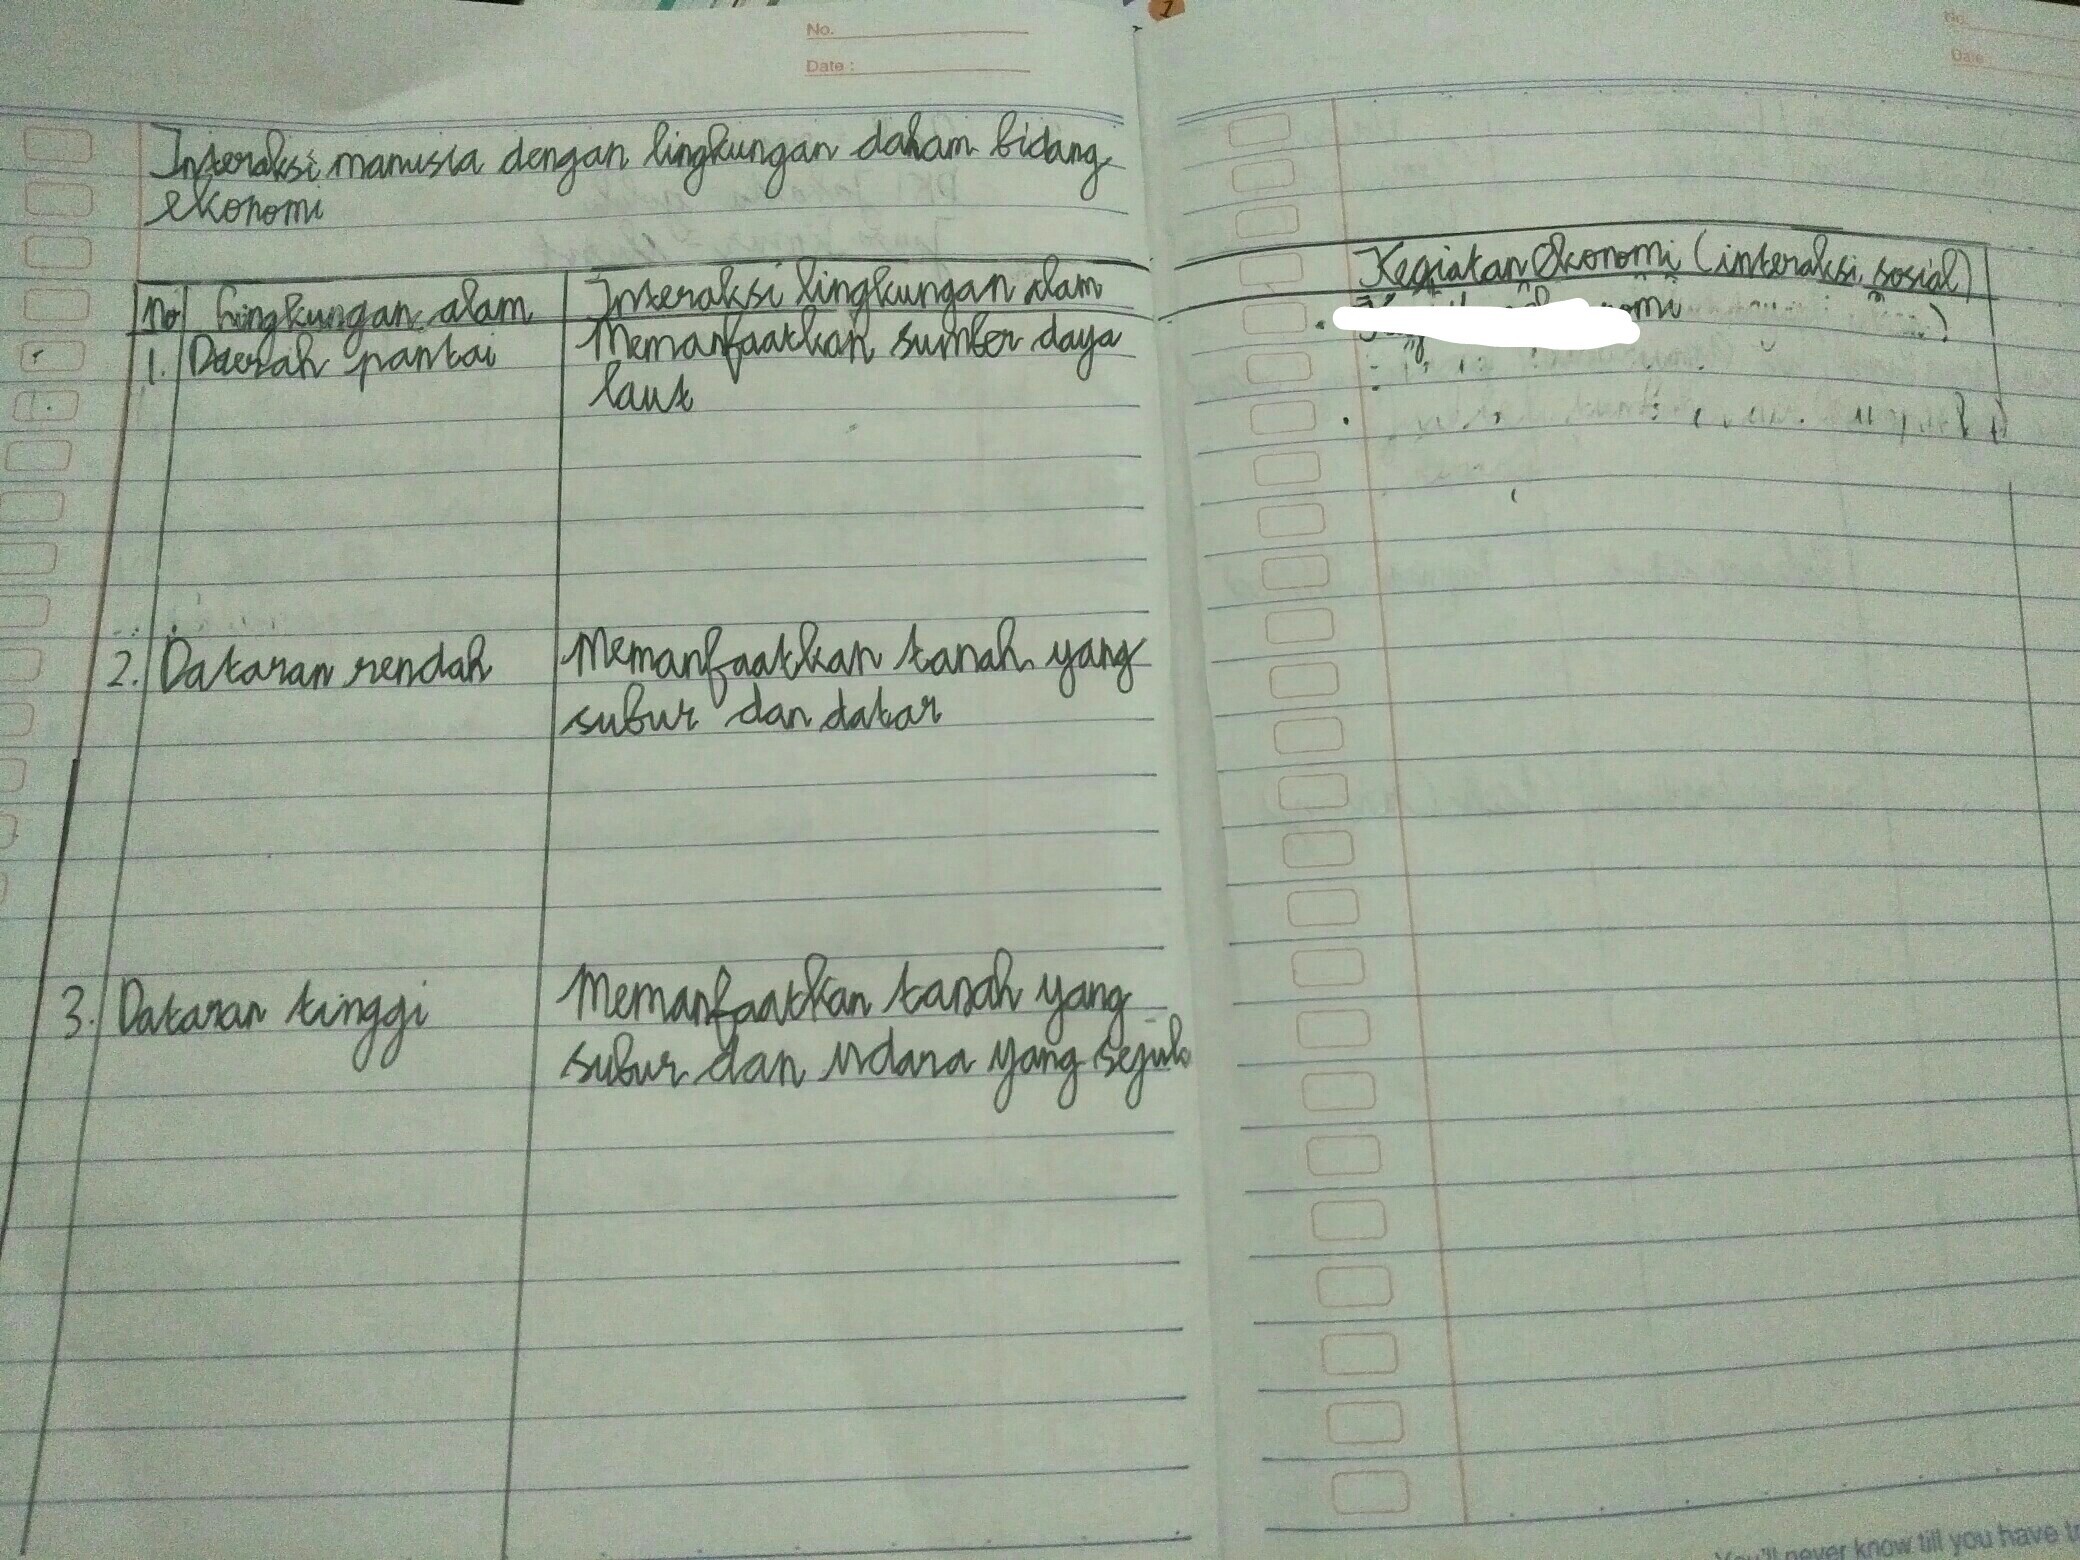 No.
Date :
Interaksi manusia dengan lingkungan dalam bidang
ekonomi
No Lingkungan alam Interaksi lingkungan alam
1. Daerah pantai Memanfaatkan sumber daya
laut
2. Dataran rendah Memanfaatkan tanah yang
subur dan datar
3. Dataran tinggi Memanfaatkan tanah yang
subur dan udara yang sejuk
1
No.
Date
Kegiatan Ekonomi (interaksi sosial)
You'll never know till you have